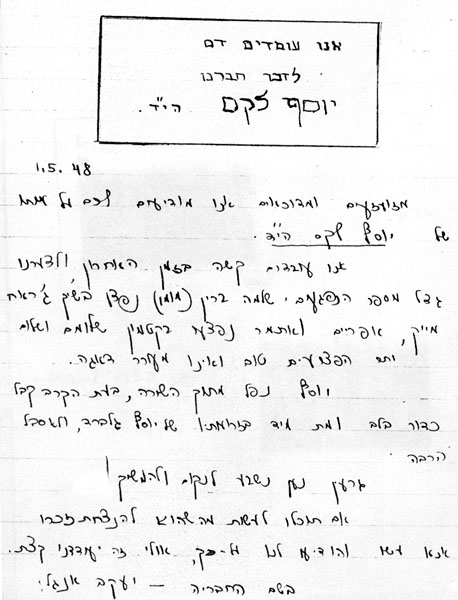 אנו עומדים דם
לזכר חברנו
יוסף לקס הי"ד.
1.5.48
מזועזעים ומדוכאים אנו מודיעים לכם על מותו
של יוסף לקס הי"ד.
אנו עובדים קשה בזמן האחרון ולצערנו
גדל מספר הנפגעים. שלמה ברין (מומן) נפצע בשיך ג'ראח
מייק, אפרים ואתמר נפצעו בקטמון שלומם ושלום
יתר הפצועים טוב ואינו מעורר דאגה.
יוסף נפל מתוך השורה, בעת הקרב קבל
כדור בלב ומת מיד בזרועותיו של יוסף גלברד, ולא סבל
הרבה.
גרעין נען נשבע לנקום ולהמשיך!
אם תוכלו לעשות מה שהוא להנצחת זכרו
אנא עשו והודיעו לנו על כך, אולי זה יעודדנו קצת.
בשם החבריה – יעקב אנגל.